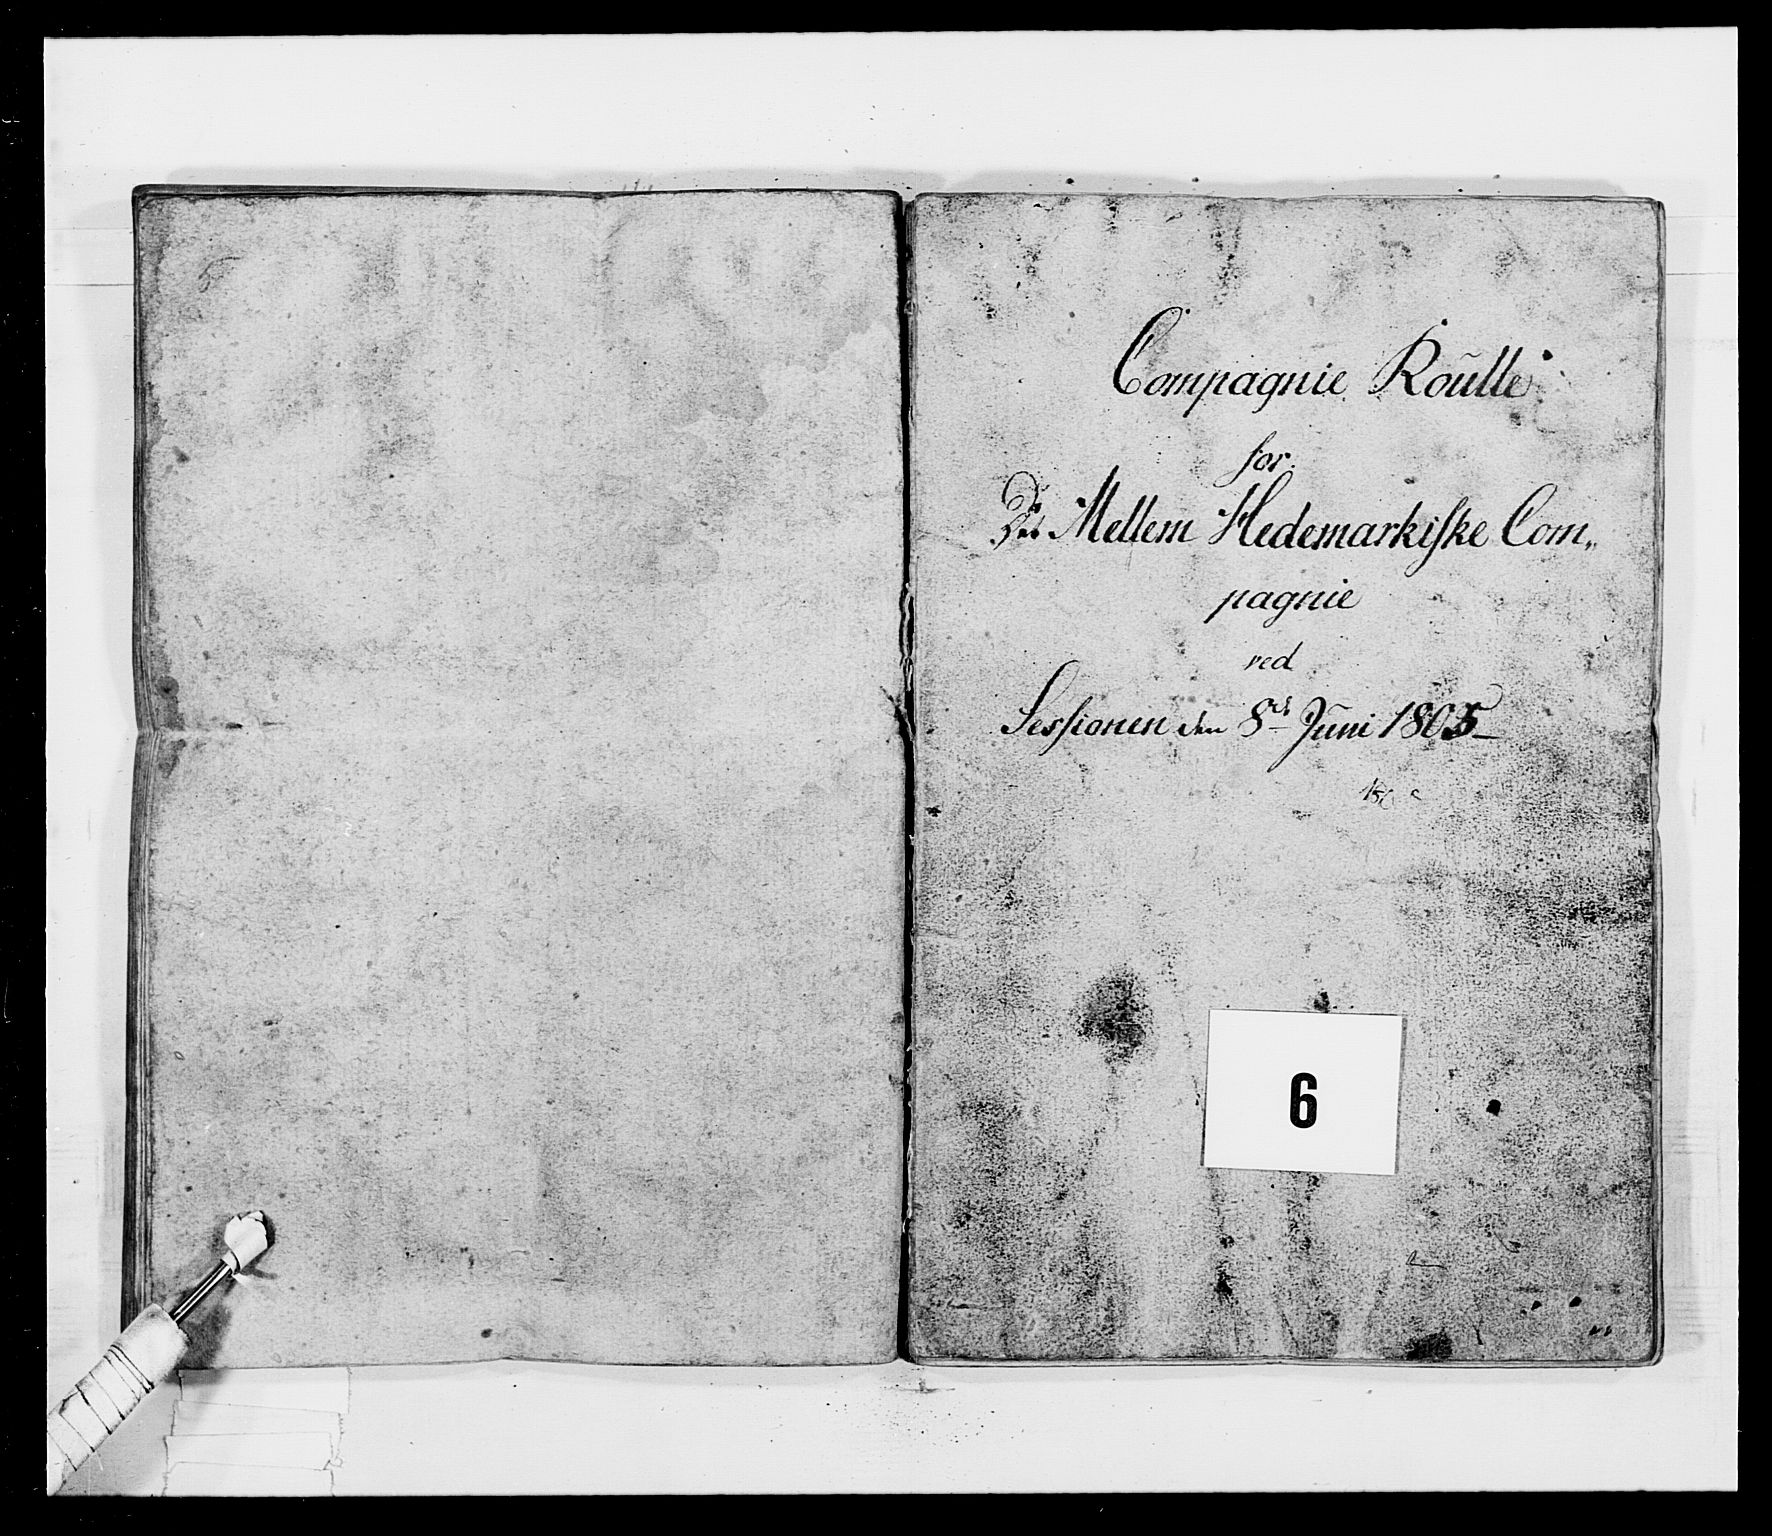 Compagnie Roulle
for
Det Mellem Hedemarkiske Com„
pagnie
ved
Sessionen den 8de Juni 1805
6